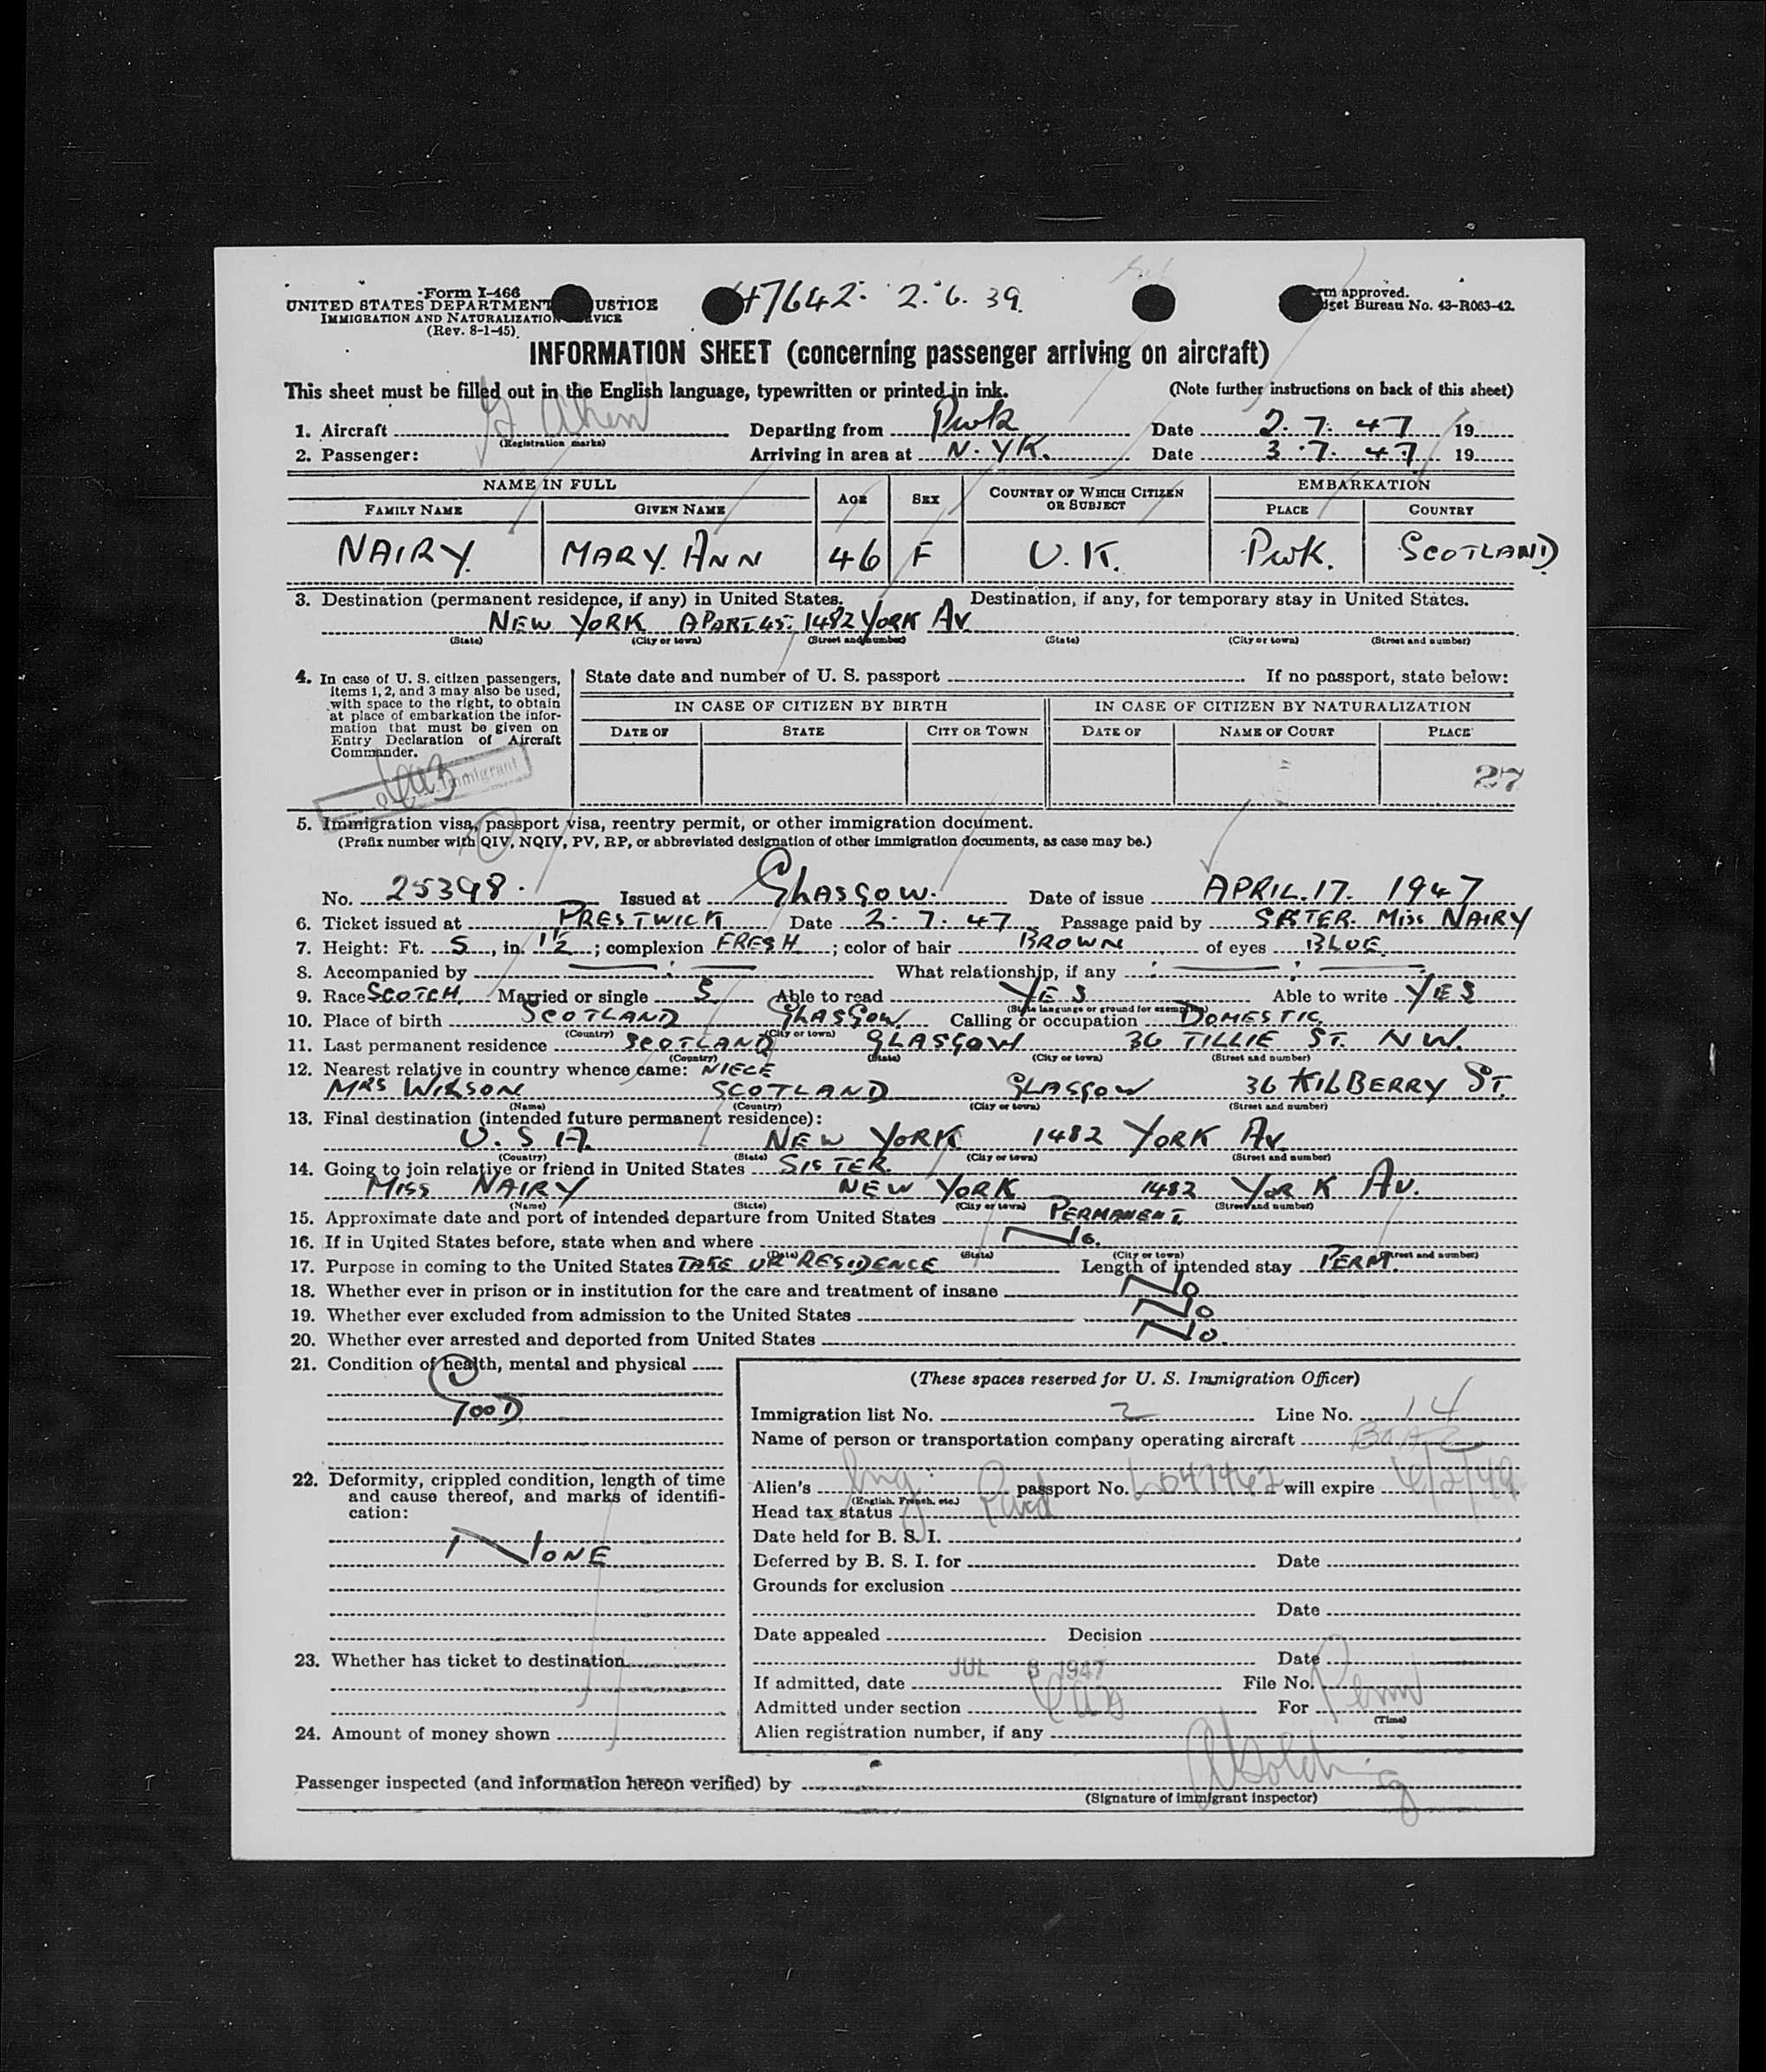 Form I-466
UNITED STATES DEPARTMENT USTICE
IMMIGRATION AND NATURALIZATION VICE
(Rev. 8-1-45)
47642. 2.6.39.
rm approved.
dget Bureau No. 43-R063-42.
INFORMATION SHEET (concerning passenger arriving on aircraft)
This sheet must be filled out in the English language, typewritten or printed in ink. (Note further instructions on back of this sheet)
1. Aircraft (Registration marks) Departing from Pwk Date 2.7.47 19
2. Passenger: Arriving in area at N.YK. Date 3.7.47 19
NAME IN FULL AGE SEX COUNTRY OF WHICH CITIZEN OR SUBJECT EMBARKATION
FAMILY NAME GIVEN NAME PLACE COUNTRY
NAIRY. MARY ANN 46 F U.K. PWK. SCOTLAND
3. Destination (permanent residence, if any) in United States. Destination, if any, for temporary stay in United States.
NEW YORK APART 45. 1482 YORK AV
(State) (City or town) (Street and number) (State) (City or town) (Street and number)
4. In case of U. S. citizen passengers, items 1, 2, and 3 may also be used, with space to the right, to obtain at place of embarkation the information that must be given on Entry Declaration of Aircraft Commander.
State date and number of U. S. passport If no passport, state below:
IN CASE OF CITIZEN BY BIRTH IN CASE OF CITIZEN BY NATURALIZATION
DATE OF STATE CITY OR TOWN DATE OF NAME OF COURT PLACE
27
Immigrant
5. Immigration visa, passport visa, reentry permit, or other immigration document.
(Prefix number with QIV, NQIV, PV, RP, or abbreviated designation of other immigration documents, as case may be.)
No. 25398. Issued at GLASGOW. Date of issue APRIL.17. 1947
6. Ticket issued at PRESTWICK Date 2.7.47 Passage paid by SISTER. MISS NAIRY
7. Height: Ft. 5, in. 1½; complexion FRESH; color of hair BROWN of eyes BLUE.
8. Accompanied by What relationship, if any
9. Race SCOTCH Married or single S Able to read YES Able to write YES
(State language or ground for exemption)
10. Place of birth SCOTLAND GLASGOW. Calling or occupation DOMESTIC.
(Country) (City or town)
11. Last permanent residence SCOTLAND GLASGOW 36 TILLIE ST. N.W.
(Country) (State) (City or town) (Street and number)
12. Nearest relative in country whence came: NIECE
MRS WILSON SCOTLAND GLASGOW 36 KILBERRY ST.
(Name) (Country) (City or town) (Street and number)
13. Final destination (intended future permanent residence):
U.S.A. NEW YORK 1482 YORK AV.
(Country) (State) (City or town) (Street and number)
14. Going to join relative or friend in United States SISTER.
MISS NAIRY NEW YORK 1482 YORK AV.
(Name) (State) (City or town) (Street and number)
15. Approximate date and port of intended departure from United States PERMANENT.
16. If in United States before, state when and where No.
(Date) (State) (City or town) (Street and number)
17. Purpose in coming to the United States TAKE UP RESIDENCE Length of intended stay PERM.
18. Whether ever in prison or in institution for the care and treatment of insane No
19. Whether ever excluded from admission to the United States No
20. Whether ever arrested and deported from United States No.
21. Condition of health, mental and physical
GOOD
22. Deformity, crippled condition, length of time and cause thereof, and marks of identification:
NONE
23. Whether has ticket to destination
24. Amount of money shown
(These spaces reserved for U. S. Immigration Officer)
Immigration list No. 2 Line No. 14
Name of person or transportation company operating aircraft
Alien's Eng. passport No. L047462 will expire 6/2/49
(English, French, etc.)
Head tax status Paid
Date held for B. S. I.
Deferred by B. S. I. for Date
Grounds for exclusion
Date
Date appealed Decision
Date
If admitted, date JUL 3 1947 File No.
Admitted under section For Perm
(Time)
Alien registration number, if any
Passenger inspected (and information hereon verified) by
(Signature of immigrant inspector)